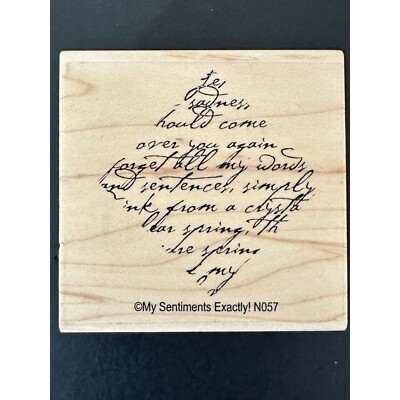 sadness
hould come
over you again
forget all my words
and sentences, simply
ink from a crysta
ear spring, th
re spring
my
©My Sentiments Exactly! N057